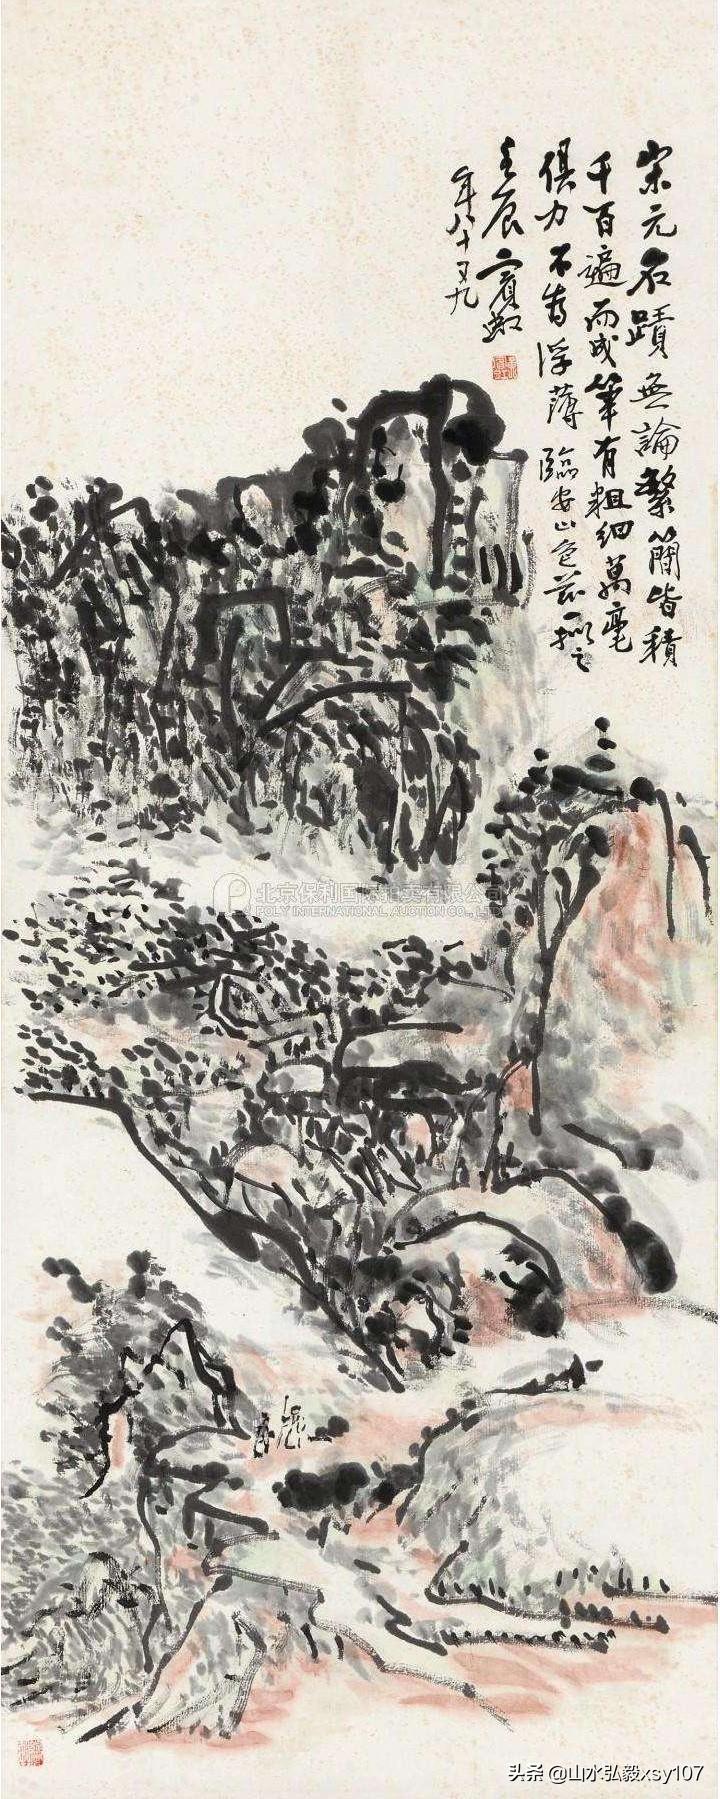 宋元名蹟無論繁簡皆積
千百遍而成筆有粗細萬毫
俱力不為浮薄臨安山色茲一擬之
壬辰賓虹
年八十又九
北京保利国际拍卖有限公司
POLY INTERNATIONAL AUCTION CO., LTD
头条 @山水弘毅xsy107